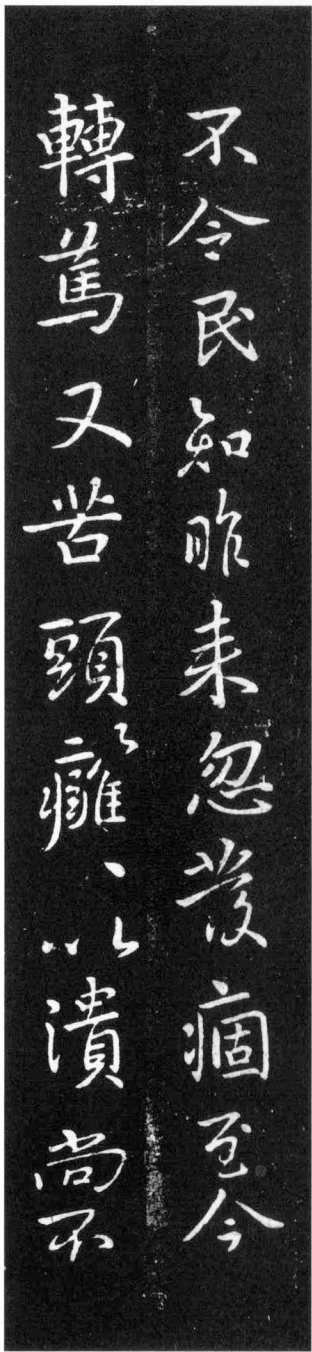 不令民知昨来忽發痼至今
轉篤又苦頭〻癰〻以潰尚不